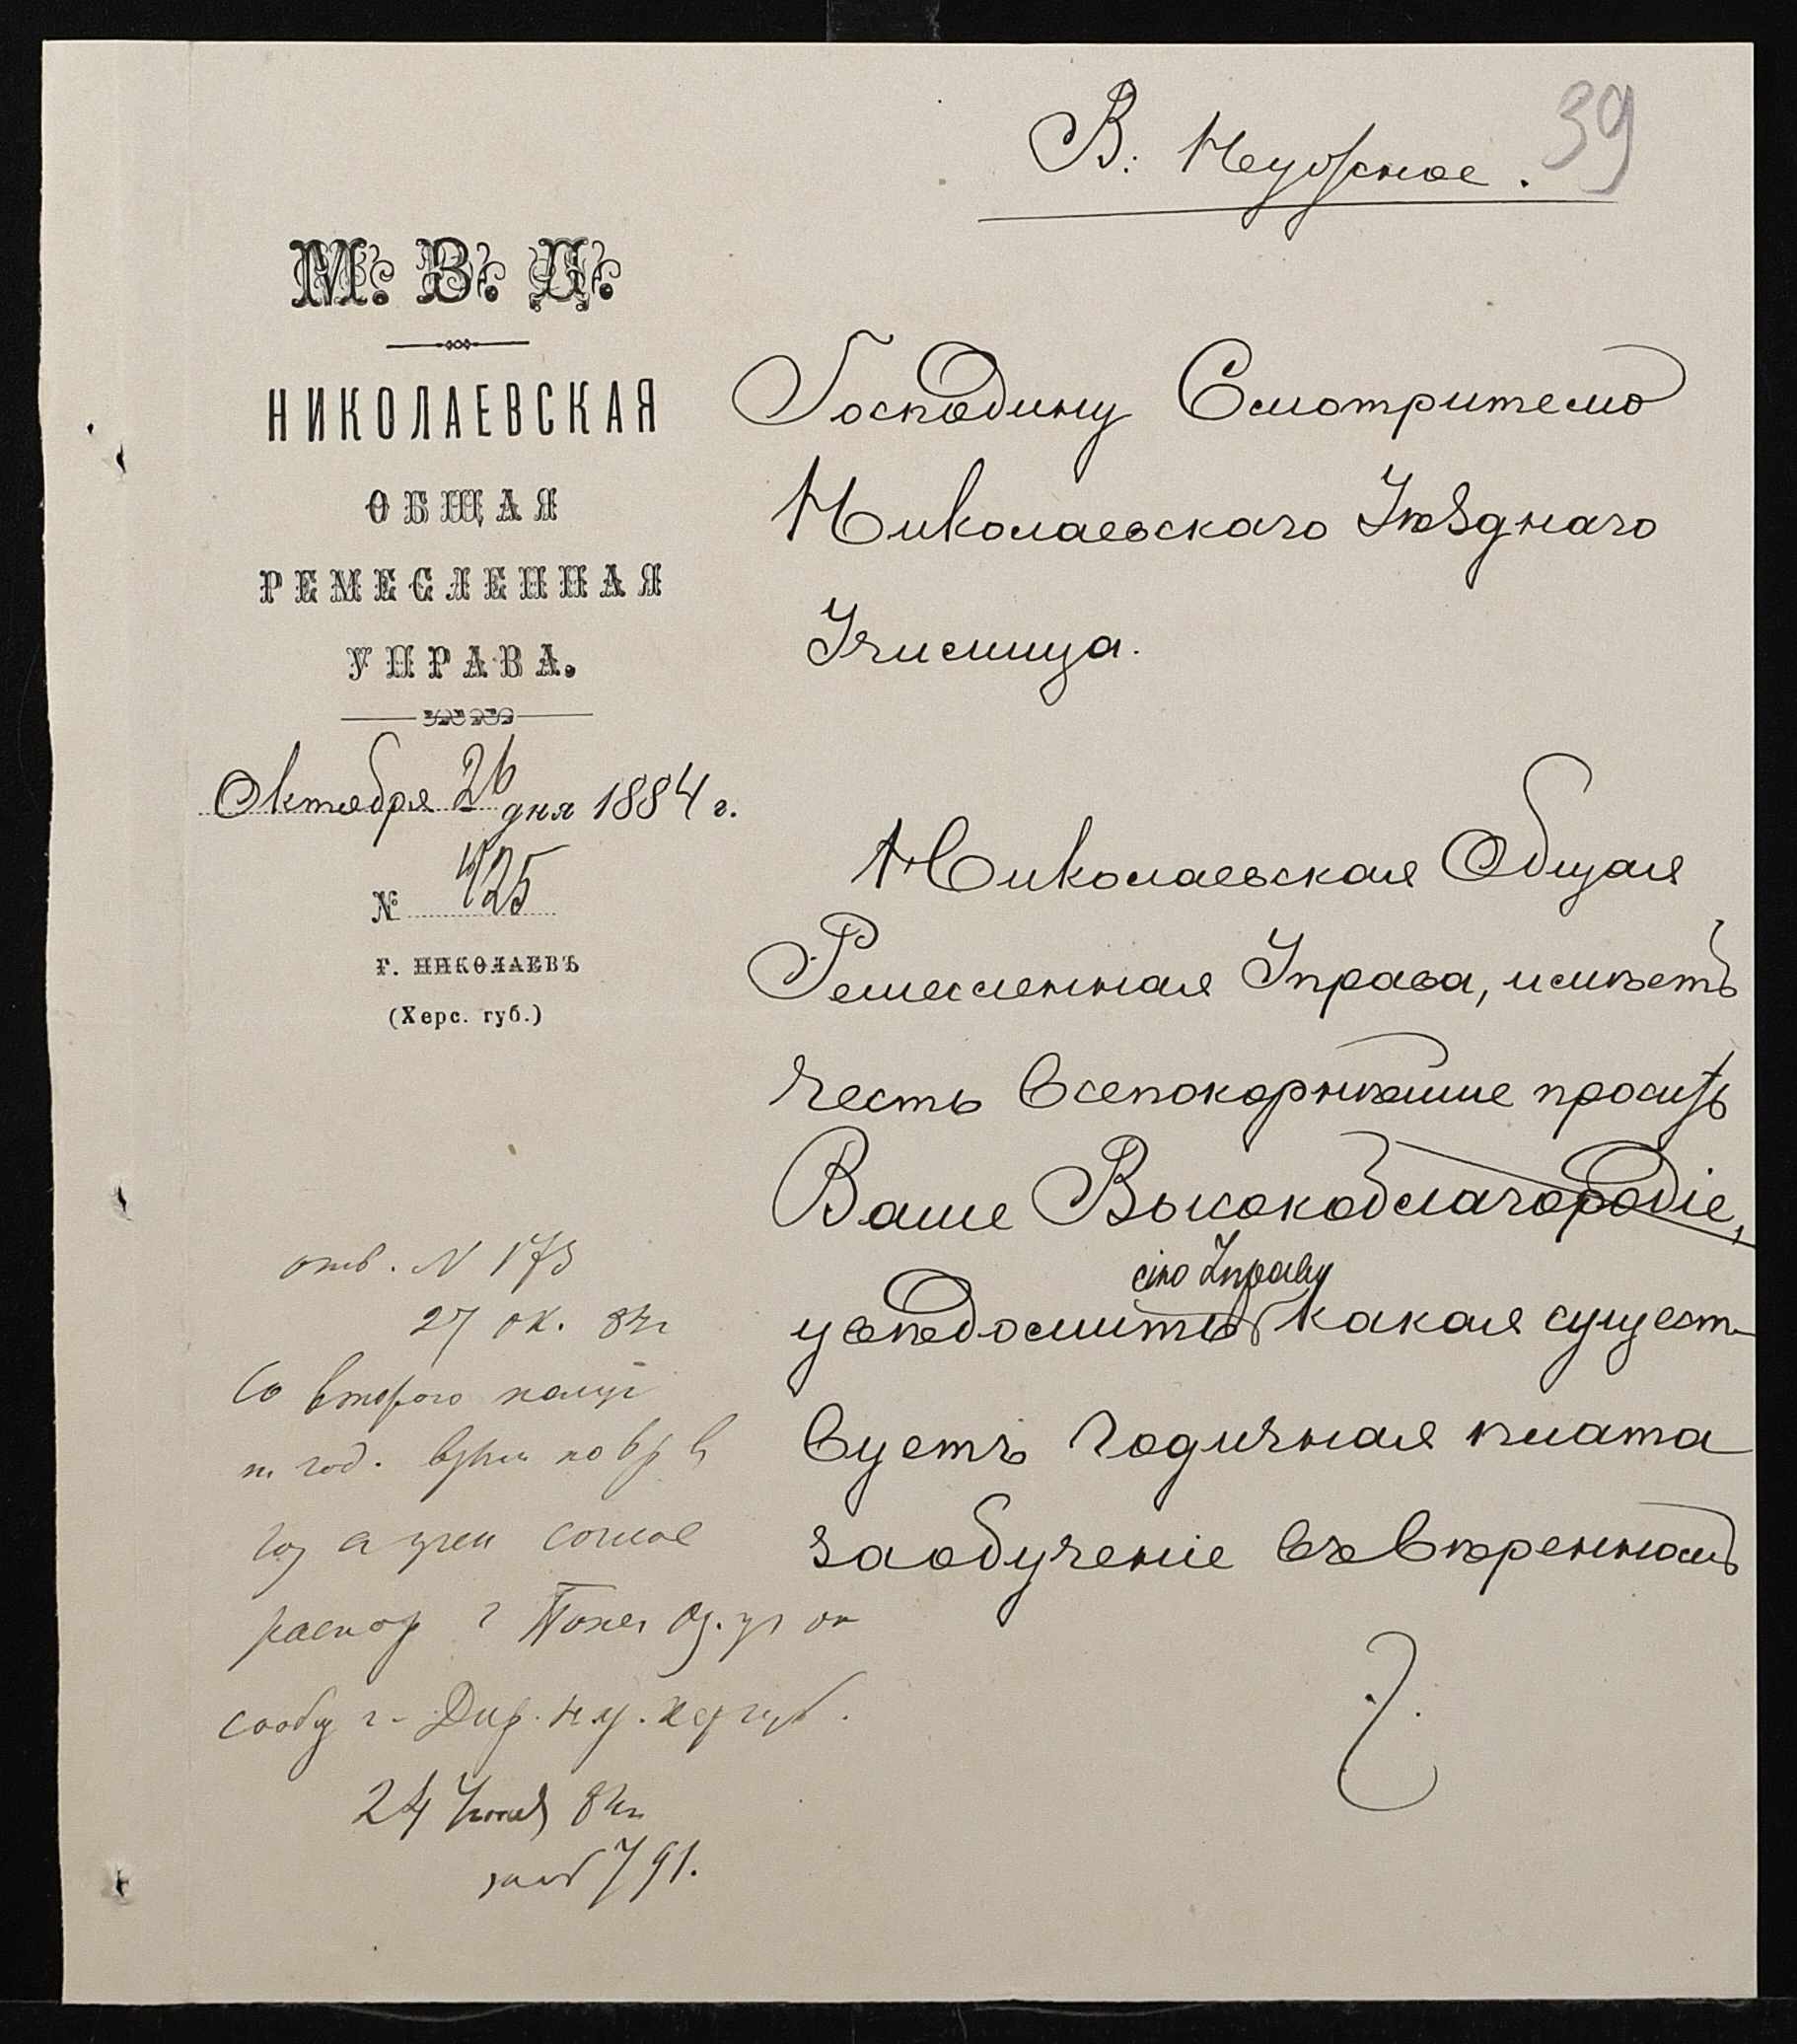 В. Нужное.
39
М. В. Д.
НИКОЛАЕВСКАЯ
ОБЩАЯ
РЕМЕСЛЕННАЯ
УПРАВА.
Октября 26 дня 1884 г.
№ 425
г. НИКОЛАЕВЪ
(Херс. губ.)
Господину Смотрителю
Николаевскаго Уѣзднаго
Училища.
Николаевская Общая
Ремесленная Управа, имѣетъ
честь всепокорнѣйше просить
Ваше Высокоблагородіе,
сію Управу
увѣдомить какая сущест-
вуетъ годичная плата
за обученіе въ ввѣренномъ
отв. N 173
27 ок. 84 г
Со второго полуг
т. год. по 6 р в
год а
распор г Попеч Од. уч ок
сообщ г. Дир. н. у. Хер губ.
24 84 г
791.